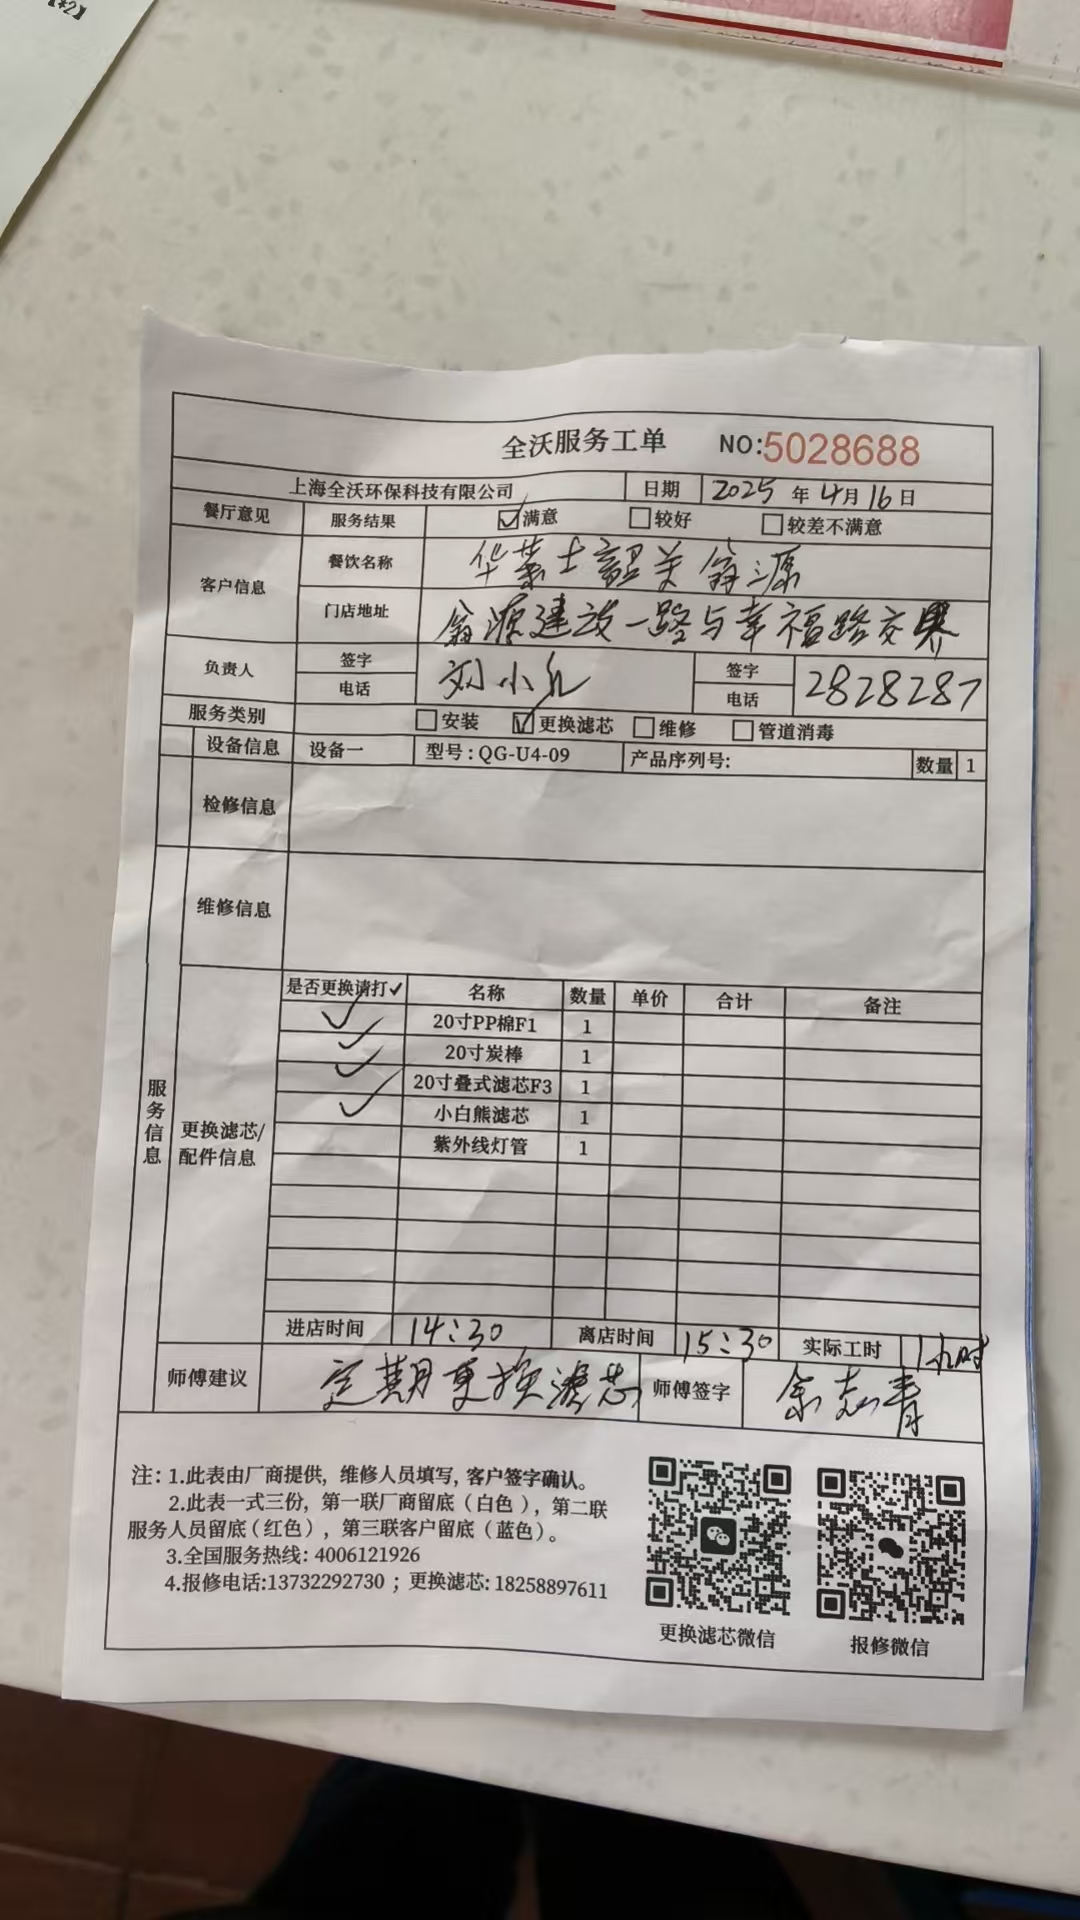 全沃服务工单 NO:5028688
上海全沃环保科技有限公司 日期 2025年4月16日
餐厅意见 服务结果 ☑满意 □较好 □较差不满意
客户信息 餐饮名称 华莱士韶关翁源
门店地址 翁源建设一路与幸福路交界
负责人 签字 电话 刘小 签字 电话 2828287
服务类别 □安装 ☑更换滤芯 □维修 □管道消毒
设备信息 设备一 型号:QG-U4-09 产品序列号: 数量 1
检修信息
维修信息
服务信息
更换滤芯/配件信息
是否更换请打✓ 名称 数量 单价 合计 备注
✓ 20寸PP棉F1 1
✓ 20寸炭棒 1
✓ 20寸叠式滤芯F3 1
✓ 小白熊滤芯 1
紫外线灯管 1
进店时间 14:30 离店时间 15:30 实际工时 1小时
师傅建议 定期更换滤芯 师傅签字 余志青
注:1.此表由厂商提供,维修人员填写,客户签字确认。
2.此表一式三份,第一联厂商留底(白色),第二联
服务人员留底(红色),第三联客户留底(蓝色)。
3.全国服务热线:4006121926
4.报修电话:13732292730;更换滤芯:18258897611
更换滤芯微信 报修微信